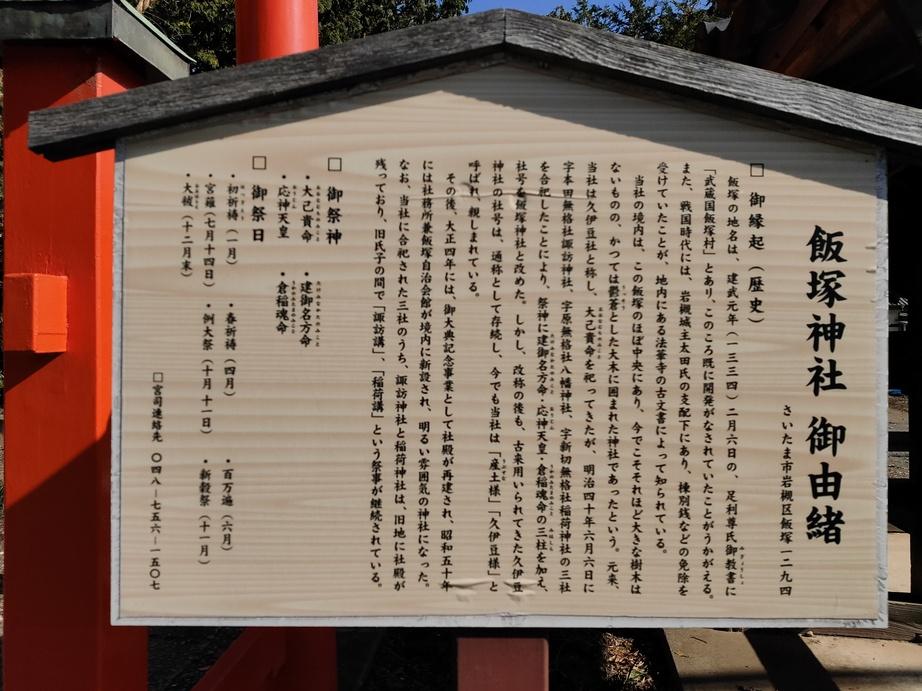 飯塚神社 御由緒
さいたま市岩槻区飯塚一二九四
□ 御縁起（歴史）
飯塚の地名は、建武元年（一三三四）二月六日の、足利尊氏御教書に
「武蔵国飯塚村」とあり、このころ既に開発がなされていたことがうかがえる。
また、戦国時代には、岩槻城主太田氏の支配下にあり、棟別銭などの免除を
受けていたことが、地内にある法華寺の古文書によって知られている。
当社の境内は、この飯塚のほぼ中央にあり、今でこそそれほど大きな樹木は
ないものの、かつては鬱蒼とした大木に囲まれた神社であったという。元来、
当社は久伊豆社と称し、大己貴命を祀ってきたが、明治四十年六月六日に
字本田無格社諏訪神社、字原無格社八幡神社、字新切無格社稲荷神社の三社
を合祀したことにより、祭神に建御名方命・応神天皇・倉稲魂命の三柱を加え、
社号を飯塚神社と改めた。しかし、改称の後も、古来用いられてきた久伊豆
神社の社号は、通称として存続し、今でも当社は「産土様」「久伊豆様」と
呼ばれ、親しまれている。
その後、大正四年には、御大典記念事業として社殿が再建され、昭和五十年
には社務所兼飯塚自治会館が境内に新設され、明るい雰囲気の神社になった。
なお、当社に合祀された三社のうち、諏訪神社と稲荷神社は、旧地に社殿が
残っており、旧氏子の間で「諏訪講」、「稲荷講」という祭事が継続されている。
□ 御祭神
・大己貴命 ・建御名方命
・応神天皇 ・倉稲魂命
□ 御祭日
・初祈祷（一月） ・春祈祷（四月） ・百万遍（六月）
・宮籠（七月十四日） ・例大祭（十月十一日） ・新穀祭（十一月）
・大祓（十二月末）
□宮司連絡先 〇四八ー七五六ー一五〇七